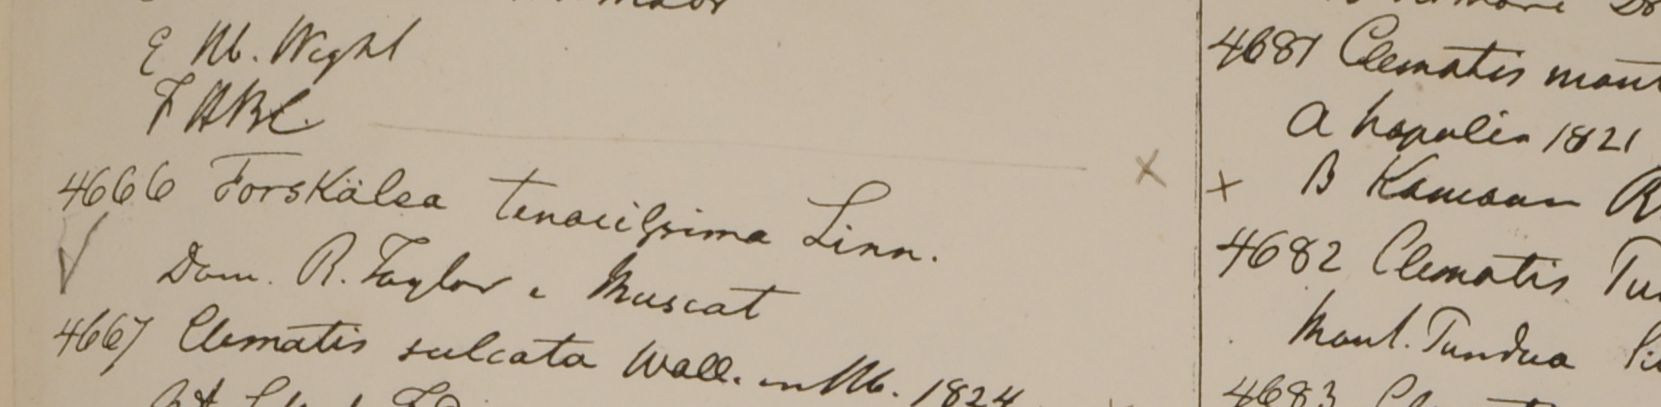 E Hb. Wight
F HBC.
4666 Forskälea tenacissima Linn.
Dom. R. Taylor e Muscat
4667 Clematis sulcata Wall. in Hb. 1824
4681 Clematis mont
a Napalia 1821
B Kamaon R
4682 Clematis Tu
Mont. Tundua
4683